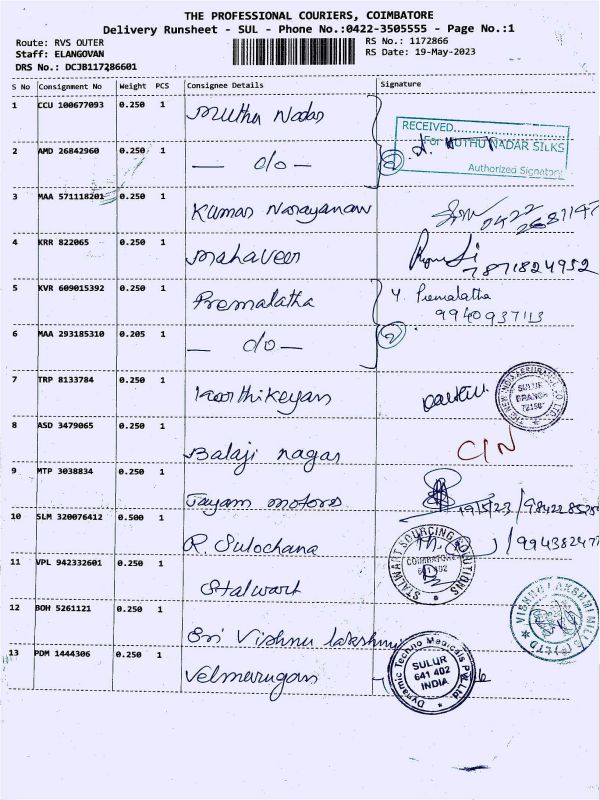 THE PROFESSIONAL COURIERS, COIMBATORE
Delivery Runsheet - SUL - Phone No.:0422-3505555 - Page No.:1
Route: RVS OUTER
Staff: ELANGOVAN
DRS No.: DCJB117286601
RS No.: 1172866
RS Date: 19-May-2023
S No Consignment No Weight PCS Consignee Details Signature
1 CCU 100677093 0.250 1 Muthu Nadar
RECEIVED
For MUTHU NADAR SILKS
Authorized Signatory
2 AMD 26842960 0.250 1 — d/o — 2
3 MAA 571118201 0.250 1 Kumar Narayanan 0422
2681147
4 KRR 822065 0.250 1 Mahaveer 7871824952
5 KVR 609015392 0.250 1 Premalatha Y. Premalatha
9940937113
6 MAA 293185310 0.205 1 — d/o — 2
7 TRP 8133784 0.250 1 Karthikeyan
THE NEW INDIA ASSURANCE CO. LTD.
SULUR
BRANCH
8 ASD 3479065 0.250 1 Balaji nagar C/N
9 MTP 3038834 0.250 1 Jayam motors 19/5/23 /984228528
10 SLM 320076412 0.500 1 R. Sulochana /994382477
11 VPL 942332601 0.250 1 Stalwart
STALWART SOURCING SOLUTIONS
COIMBATORE
641 402
12 BOH 5261121 0.250 1 Sri Vishnu lakshmi
VISHNU LAKSHMI MILLS (P) LTD
13 PDM 1444306 0.250 1 Velmurugan
Dynamic Techno Medicals Pvt. Ltd
SULUR
641 402
INDIA